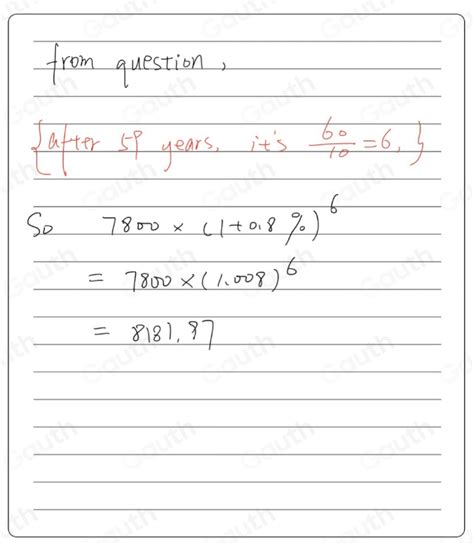 from question,
{after 59 years, it's 60/10 = 6,}
So 7800 × (1+0.8%)^6
= 7800 × (1.008)^6
= 8181.97